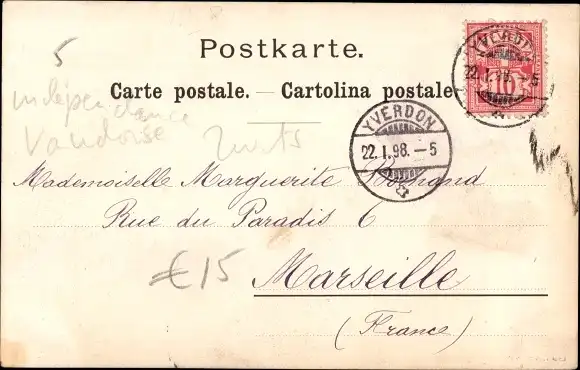 5
Postkarte.
Carte postale. — Cartolina postale.
YVERDON
22.1.98.-5
10
YVERDON
22.1.98.-5
indépendance
Vaudoise
Mademoiselle Marguerite
Rue du Paradis 6
£15
Marseille
(France)